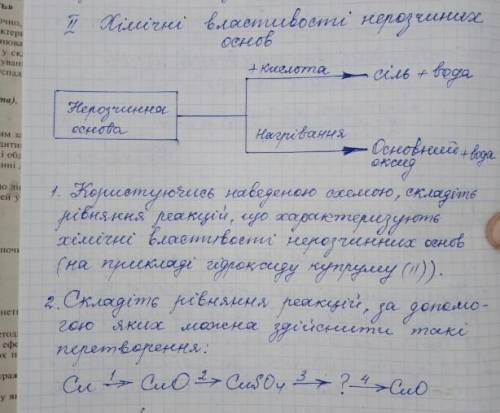 II Хімічні властивості нерозчиних
основ
+кислота
сіль + вода
Нерозчинна
основа
Нагрівання
Основний + вода
оксид
1. Користуючись наведеною схемою, складіть
рівняння реакцій, що характеризують
хімічні властивості нерозчинних основ
(на прикладі гідроксиду купруму (II)).
2. Складіть рівняння реакцій, за допомо-
гою яких можна здійснити такі
перетворення:
Cu 1→ CuO 2→ CuSO4 3→ ? 4→ CuO